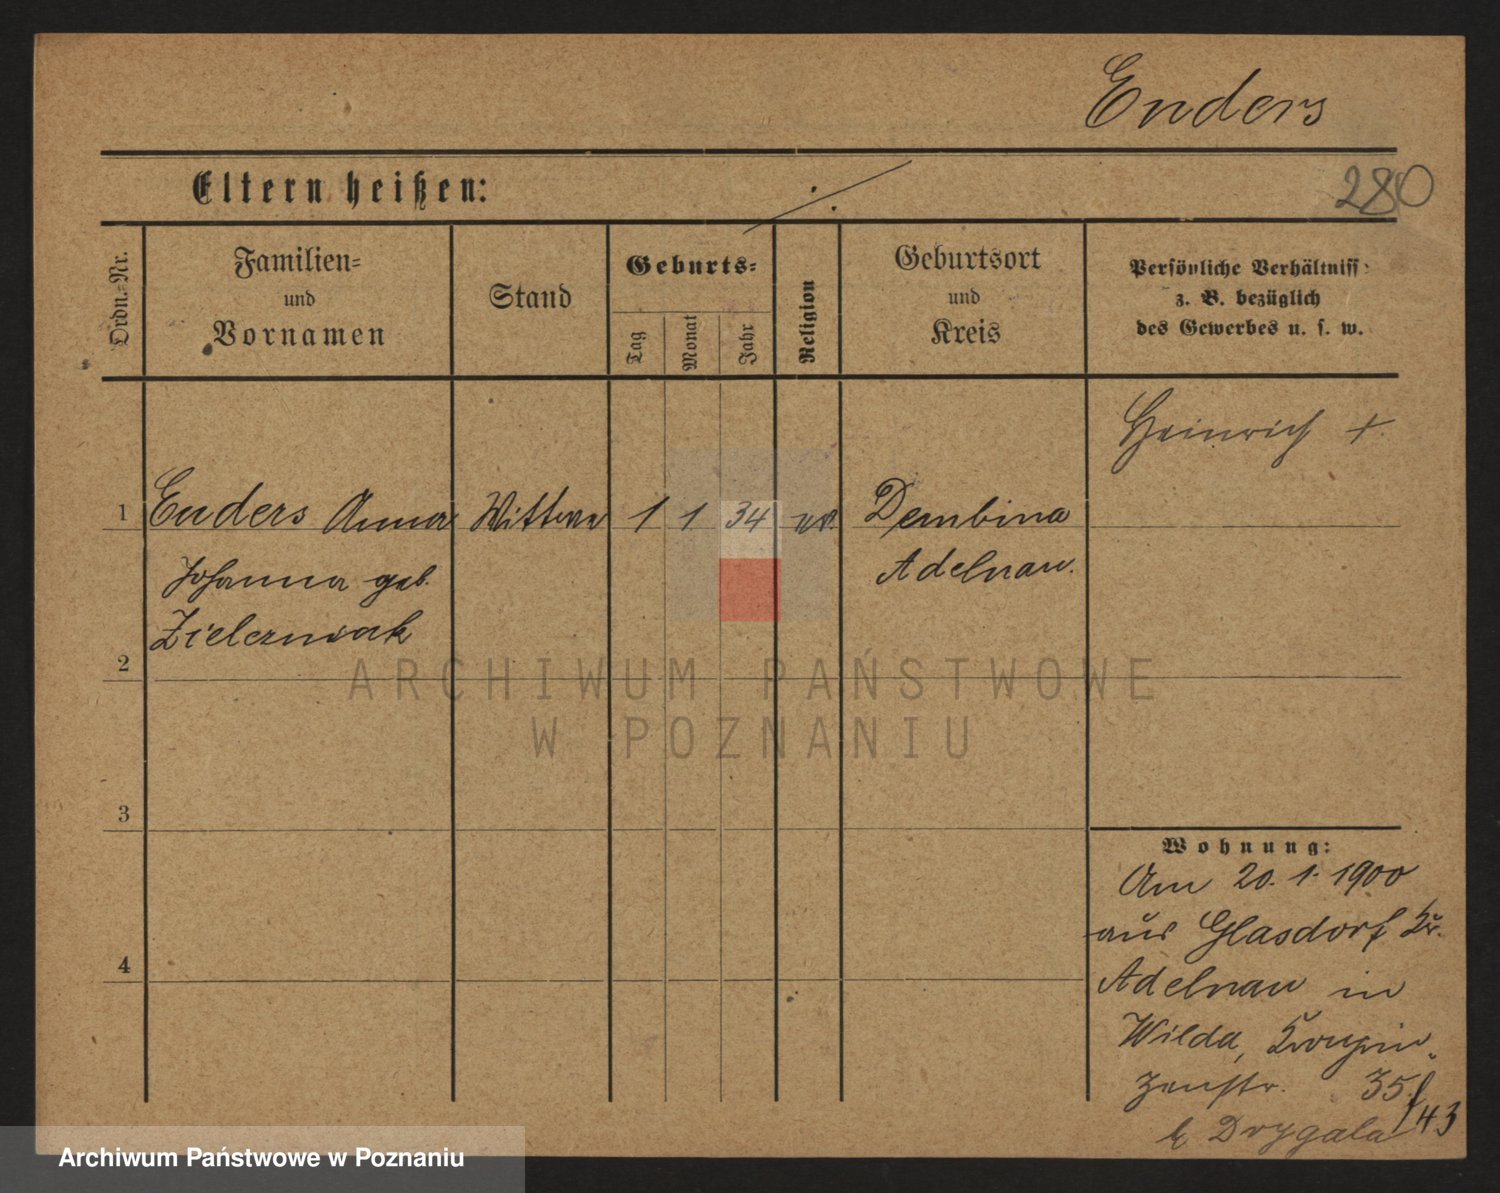 Enders
Eltern heißen: ./.
280
Ordn.-Nr.
Familien-
und
Vornamen
Stand
Geburts-
Tag
Monat
Jahr
Religion
Geburtsort
und
Kreis
Persönliche Verhältniss
z. B. bezüglich
des Gewerbes u. s. w.
Heinrich +.
1 Enders Anna Wittwe 1 1 34 ev. Dembina
Johanna geb. Adelnau.
Zielezniak
2
ARCHIWUM PAŃSTWOWE
W POZNANIU
3
Wohnung:
Am 20. 1. 1900
aus Glasdorf Kr.
4 Adelnau in
Wilda, Kronprin-
zenstr. 35.
b Drygala 43
Archiwum Państwowe w Poznaniu